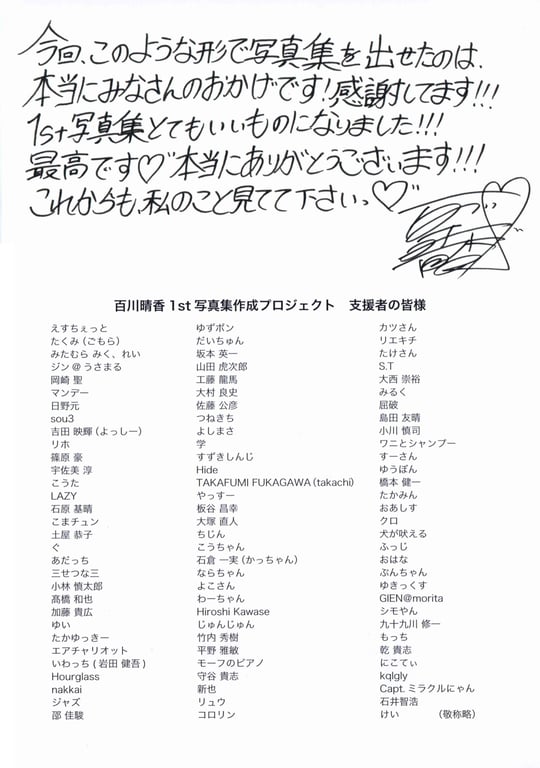 今回、このような形で写真集を出せたのは、
本当にみなさんのおかげです!感謝してます!!!
1st写真集とてもいいものになりました!!!
最高です♡本当にありがとうございます!!!
これからも、私のこと見ててて下さいっ♡
百川晴香 1st 写真集作成プロジェクト 支援者の皆様
えすちぇっと ゆずポン カツさん
たくみ (ごもら) だいちゅん リエキチ
みたむら みく、れい 坂本 英一 たけさん
ジン @ うさまる 山田 虎次郎 S.T
岡崎 聖 工藤 龍馬 大西 崇裕
マンデー 大村 良史 みるく
日野元 佐藤 公彦 屈破
sou3 つねきち 島田 友晴
吉田 映輝 (よっしー) よしまさ 小川 慎司
リホ 学 ワニとシャンプー
篠原 豪 すずきしんじ すーさん
宇佐美 淳 Hide ゆうぽん
こうた TAKAFUMI FUKAGAWA (takachi) 橋本 健一
LAZY やっすー たかみん
石原 基晴 板谷 昌幸 おあしす
こまチュン 大塚 直人 クロ
土屋 恭子 ちじん 犬が吠える
ぐ こうちゃん ふっじ
あだっち 石倉 一実 (かっちゃん) おはな
三せつな三 ならちゃん ぶんちゃん
小林 慎太郎 よこさん ゆきっくす
髙橋 和也 わーちゃん GIEN@morita
加藤 貴広 Hiroshi Kawase シモやん
ゆい じゅんじゅん 九十九川 修一
たかゆっきー 竹内 秀樹 もっち
エアチャリオット 平野 雅敏 乾 貴志
いわっち ( 岩田 健吾 ) モーフのピアノ にこてぃ
Hourglass 守谷 貴志 kqlgly
nakkai 新也 Capt. ミラクルにゃん
ジャズ リュウ 石井智浩
邵 佳駿 コロリン けい (敬称略)